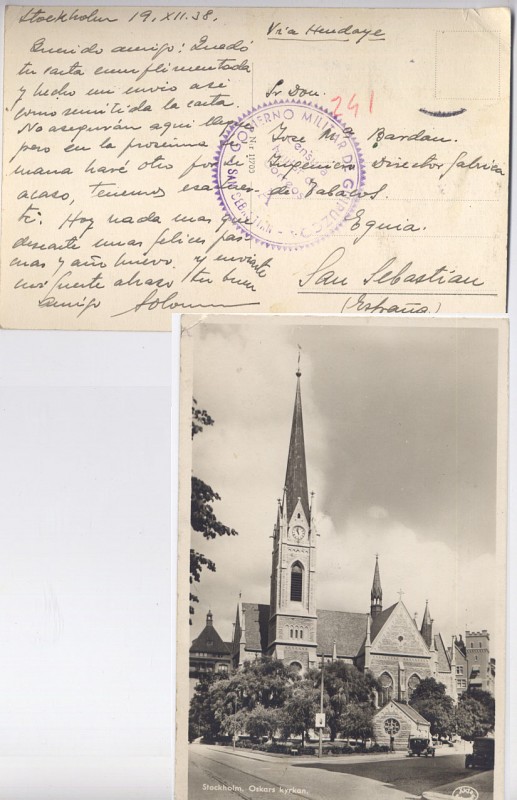 Stockholm 19.XII.38.
Querido amigo: Quedó
tu carta cumplimentada
y hecho mi envío así
como remitida la carta.
No aseguran aquí
pero en la proxima se
mana haré otro por si
acaso, tenemos
ti. Hoy nada mas que
desearte unas felices pas
cuas y año nuevo. y enviarte
un fuerte abrazo tu buen
amigo
Via Hendaye
Sr Don.
241
Jose Mª Bardan.
Ingeniero Director fabrica
de Tabacos.
Eguia.
San Sebastian
(España.)
GOBIERNO MILITAR DE GUIPUZCOA
SAN SEBASTIAN
Censura
Stockholm. Oskars kyrkan.